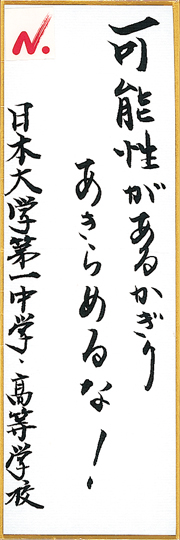 可能性があるかぎり
あきらめるな!
日本大学第一中学・高等学校
N.